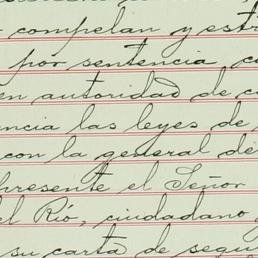 compelan y est
por sentencia, c
en autoridad de c
ncia las leyes de
con la general de
presente el Señor
el Río, ciudadano
su carta de segu